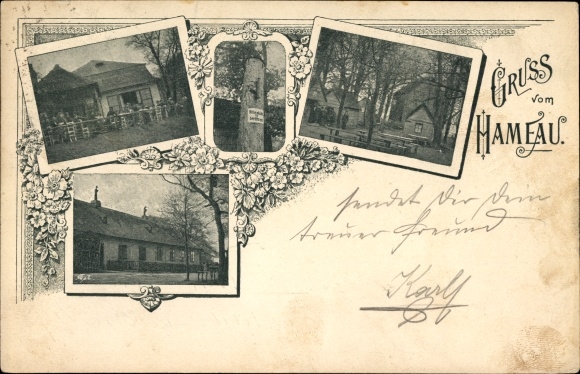 GRUSS
vom
HAMEAU.
sendet Dir Dein
treuer Freund
Karl